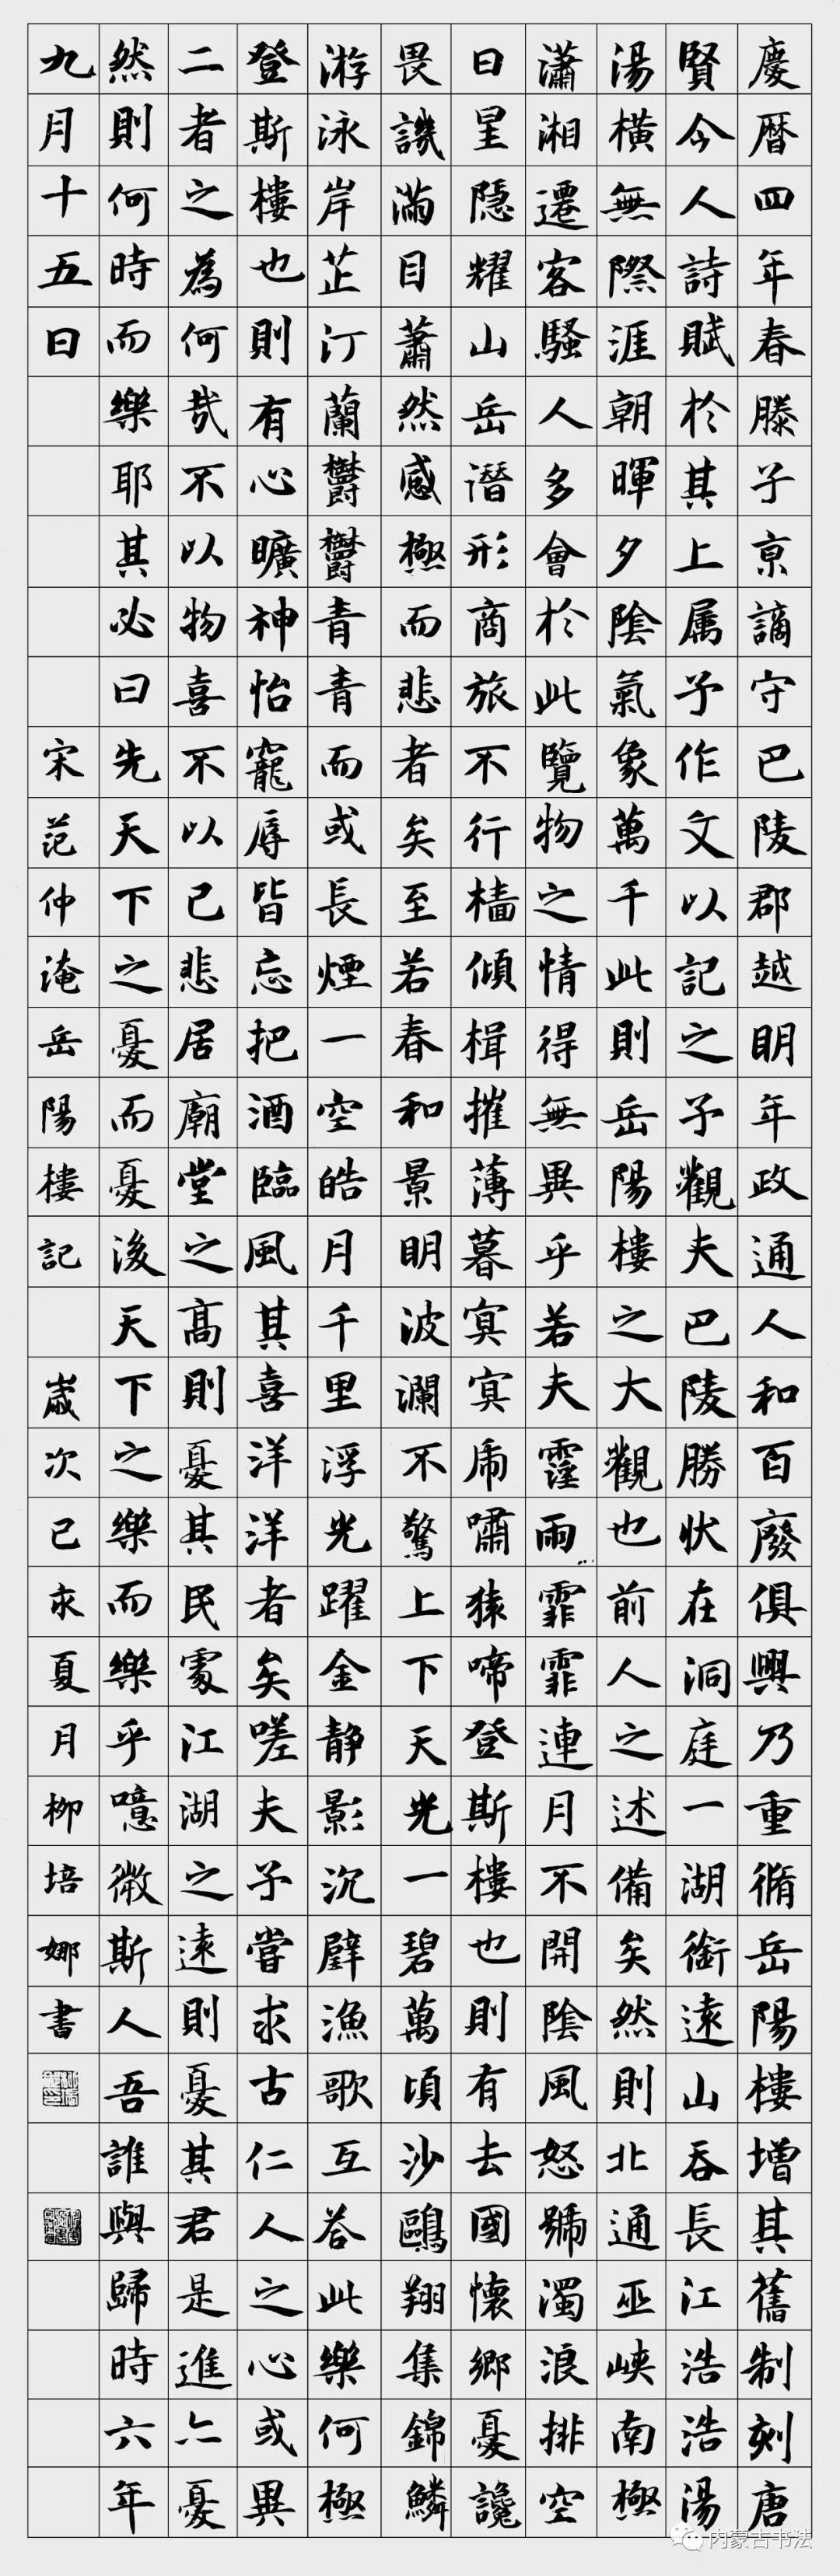 慶暦四年春滕子京謫守巴陵郡越明年政通人和百廢俱興乃重脩岳陽樓增其舊制刻唐
賢今人詩賦於其上属予作文以記之予觀夫巴陵勝狀在洞庭一湖銜遠山吞長江浩浩湯
湯橫無際涯朝暉夕陰氣象萬千此則岳陽樓之大觀也前人之述備矣然則北通巫峽南極
瀟湘遷客騷人多會於此覽物之情得無異乎若夫霪雨霏霏連月不開陰風怒號濁浪排空
日星隱耀山岳潛形商旅不行檣傾楫摧薄暮冥冥虎嘯猿啼登斯樓也則有去國懷鄉憂讒
畏譏滿目蕭然感極而悲者矣至若春和景明波瀾不驚上下天光一碧萬頃沙鷗翔集錦鱗
游泳岸芷汀蘭鬱鬱青青而或長煙一空皓月千里浮光躍金静影沉璧漁歌互答此樂何極
登斯樓也則有心曠神怡寵辱皆忘把酒臨風其喜洋洋者矣嗟夫予嘗求古仁人之心或異
二者之為何哉不以物喜不以己悲居廟堂之高則憂其民處江湖之遠則憂其君是進亦憂
然則何時而樂耶其必曰先天下之憂而憂後天下之樂而樂乎噫微斯人吾誰與歸時六年
九月十五日 宋范仲淹岳陽樓記 歲次己亥夏月柳培娜書
内蒙古书法